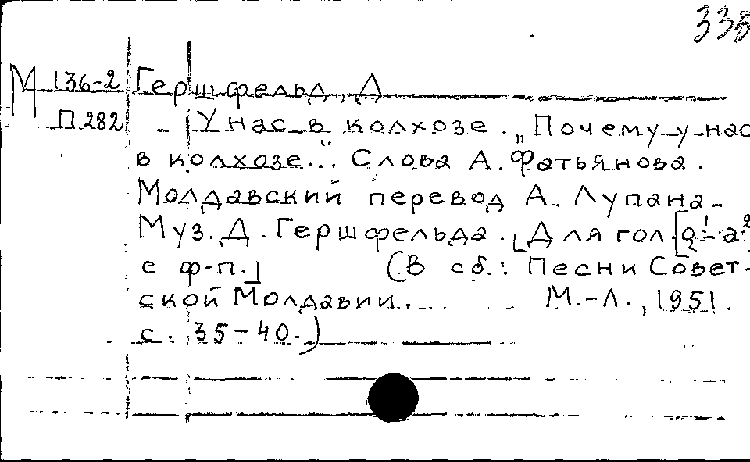 338
М 136-2 Гершфельд, Д
П 282 У нас в колхозе. „Почему у нас
в колхозе..." Слова А. Фатьянова.
Молдавский перевод А. Лупана.
Муз. Д. Гершфельда. [Для гол.
с ф-п.] (В сб.: Песни Совет-
ской Молдавии. М.-Л., 1951.
с. 35-40.)